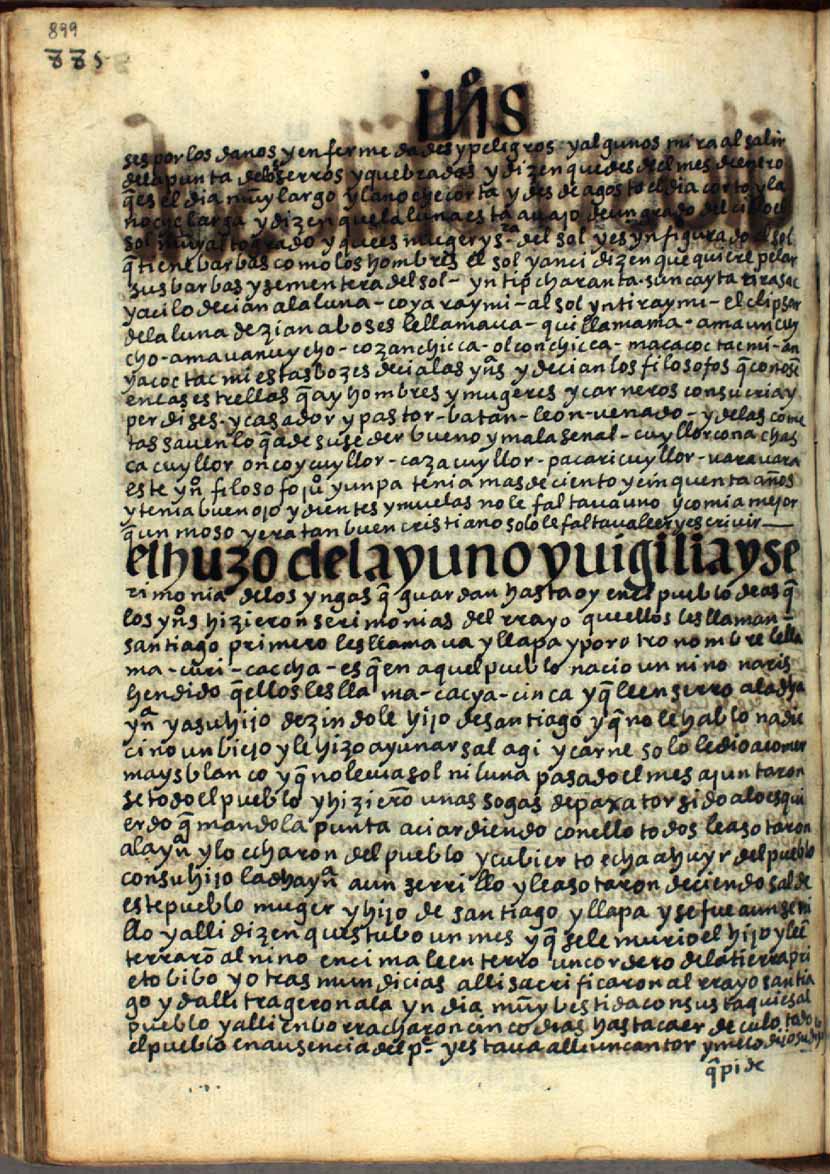 899
885
in̄s
ses por los danos y enfermedades y peligros y algunos mira al salir
de la punta de los serros y quebradas y dizen que desde el mes de enero
q̄ es el dia muy largo y la noche corta y desde agosto el dia corto y la
noche larga y dizen que la luna esta auajo de un grado del cielo el
sol muy alto grado y que es muger y s.ra del sol y es yn figurado el sol
q̄ tiene barbas como los hombres el sol y anci dizen que quiere pelar
sus barbas y sementera del sol - yntip charanta - suncayta tirasac
y aci lo decian a la luna - coya raymi - al sol yntiraymi - el clipsar
de la luna dezian a boses le llamaua - quillamama - ama uncuy
cho - ama uanuycho - cozanchicca - olconchicca - macacoctacmi - an
yacoctacmi estas bozes decia las yn̄s y decian los filosofos q̄ conose
en cas estrellas q̄ ay hombres y mugeres y carneros con su cria y
perdises - y casador y pastor - batan - leon - uenado - y de las come
tas sauen lo q̄ a de suseder bueno y mala señal - cuyllorcona chas
ca cuyllor oncoy cuyllor - caza cuyllor - pacari cuyllor - uara uara
este yn̄ filosofo ju.o yunpa tenia mas de ciento y cinquenta años
y tenia buen ojo y dientes y muelas no le faltaua uno y comia mejor
q̄ un moso y era tan buen cristiano solo le faltaua leer y escriuir
el huzo del ayuno y uigilia y se
rimonia de los yngas q̄ guardan hasta oy en el pueblo de as q̄
los yn̄s hizieron serimonias del rrayo que ellos les llaman -
santiago primero les llamaua yllapa y por otro nombre le lla
ma - curi - caccha - es q̄ en aquel pueblo nacio un nino naris
hendido q̄ ellos les llama - cacya - cinca y q̄ le enserro a la dha
yn̄ y a su hijo dezindole hijo de santiago y q̄ no le hablo nadie
cino un biejo y le hizo ayunar sal agi y carne solo le dio a comer
mays blanco y q̄ no le uia sol ni luna pasado el mes ajuntaron
se todo el pueblo y hiziero unas sogas de paxa torsido a lo esqui
erdo q̄mando la punta aci ardiendo con ello todos le asotaron
a la yn̄ y lo echaron del pueblo y cubierto echa a huyr del pueblo
con su hijo la dha yn̄ a un serrillo y le asotaron deciendo sal de
este pueblo muger y hijo de santiago yllapa y se fue a un seri
llo y alli dizen questubo un mes y q̄ se le murio el hijo y le en
terraro al nino encima le enterro un cordero de la tierra pri
eto bibo y otras mundicias alli sacrificaron al rrayo santia
go y d alli trageron a la yndia muy bestida con sus taquies al
pueblo y alli enborracharon cinco dias hasta caer de culo todo
el pueblo en ausencia del p.e y estaua alli un cantor
q̄ pide